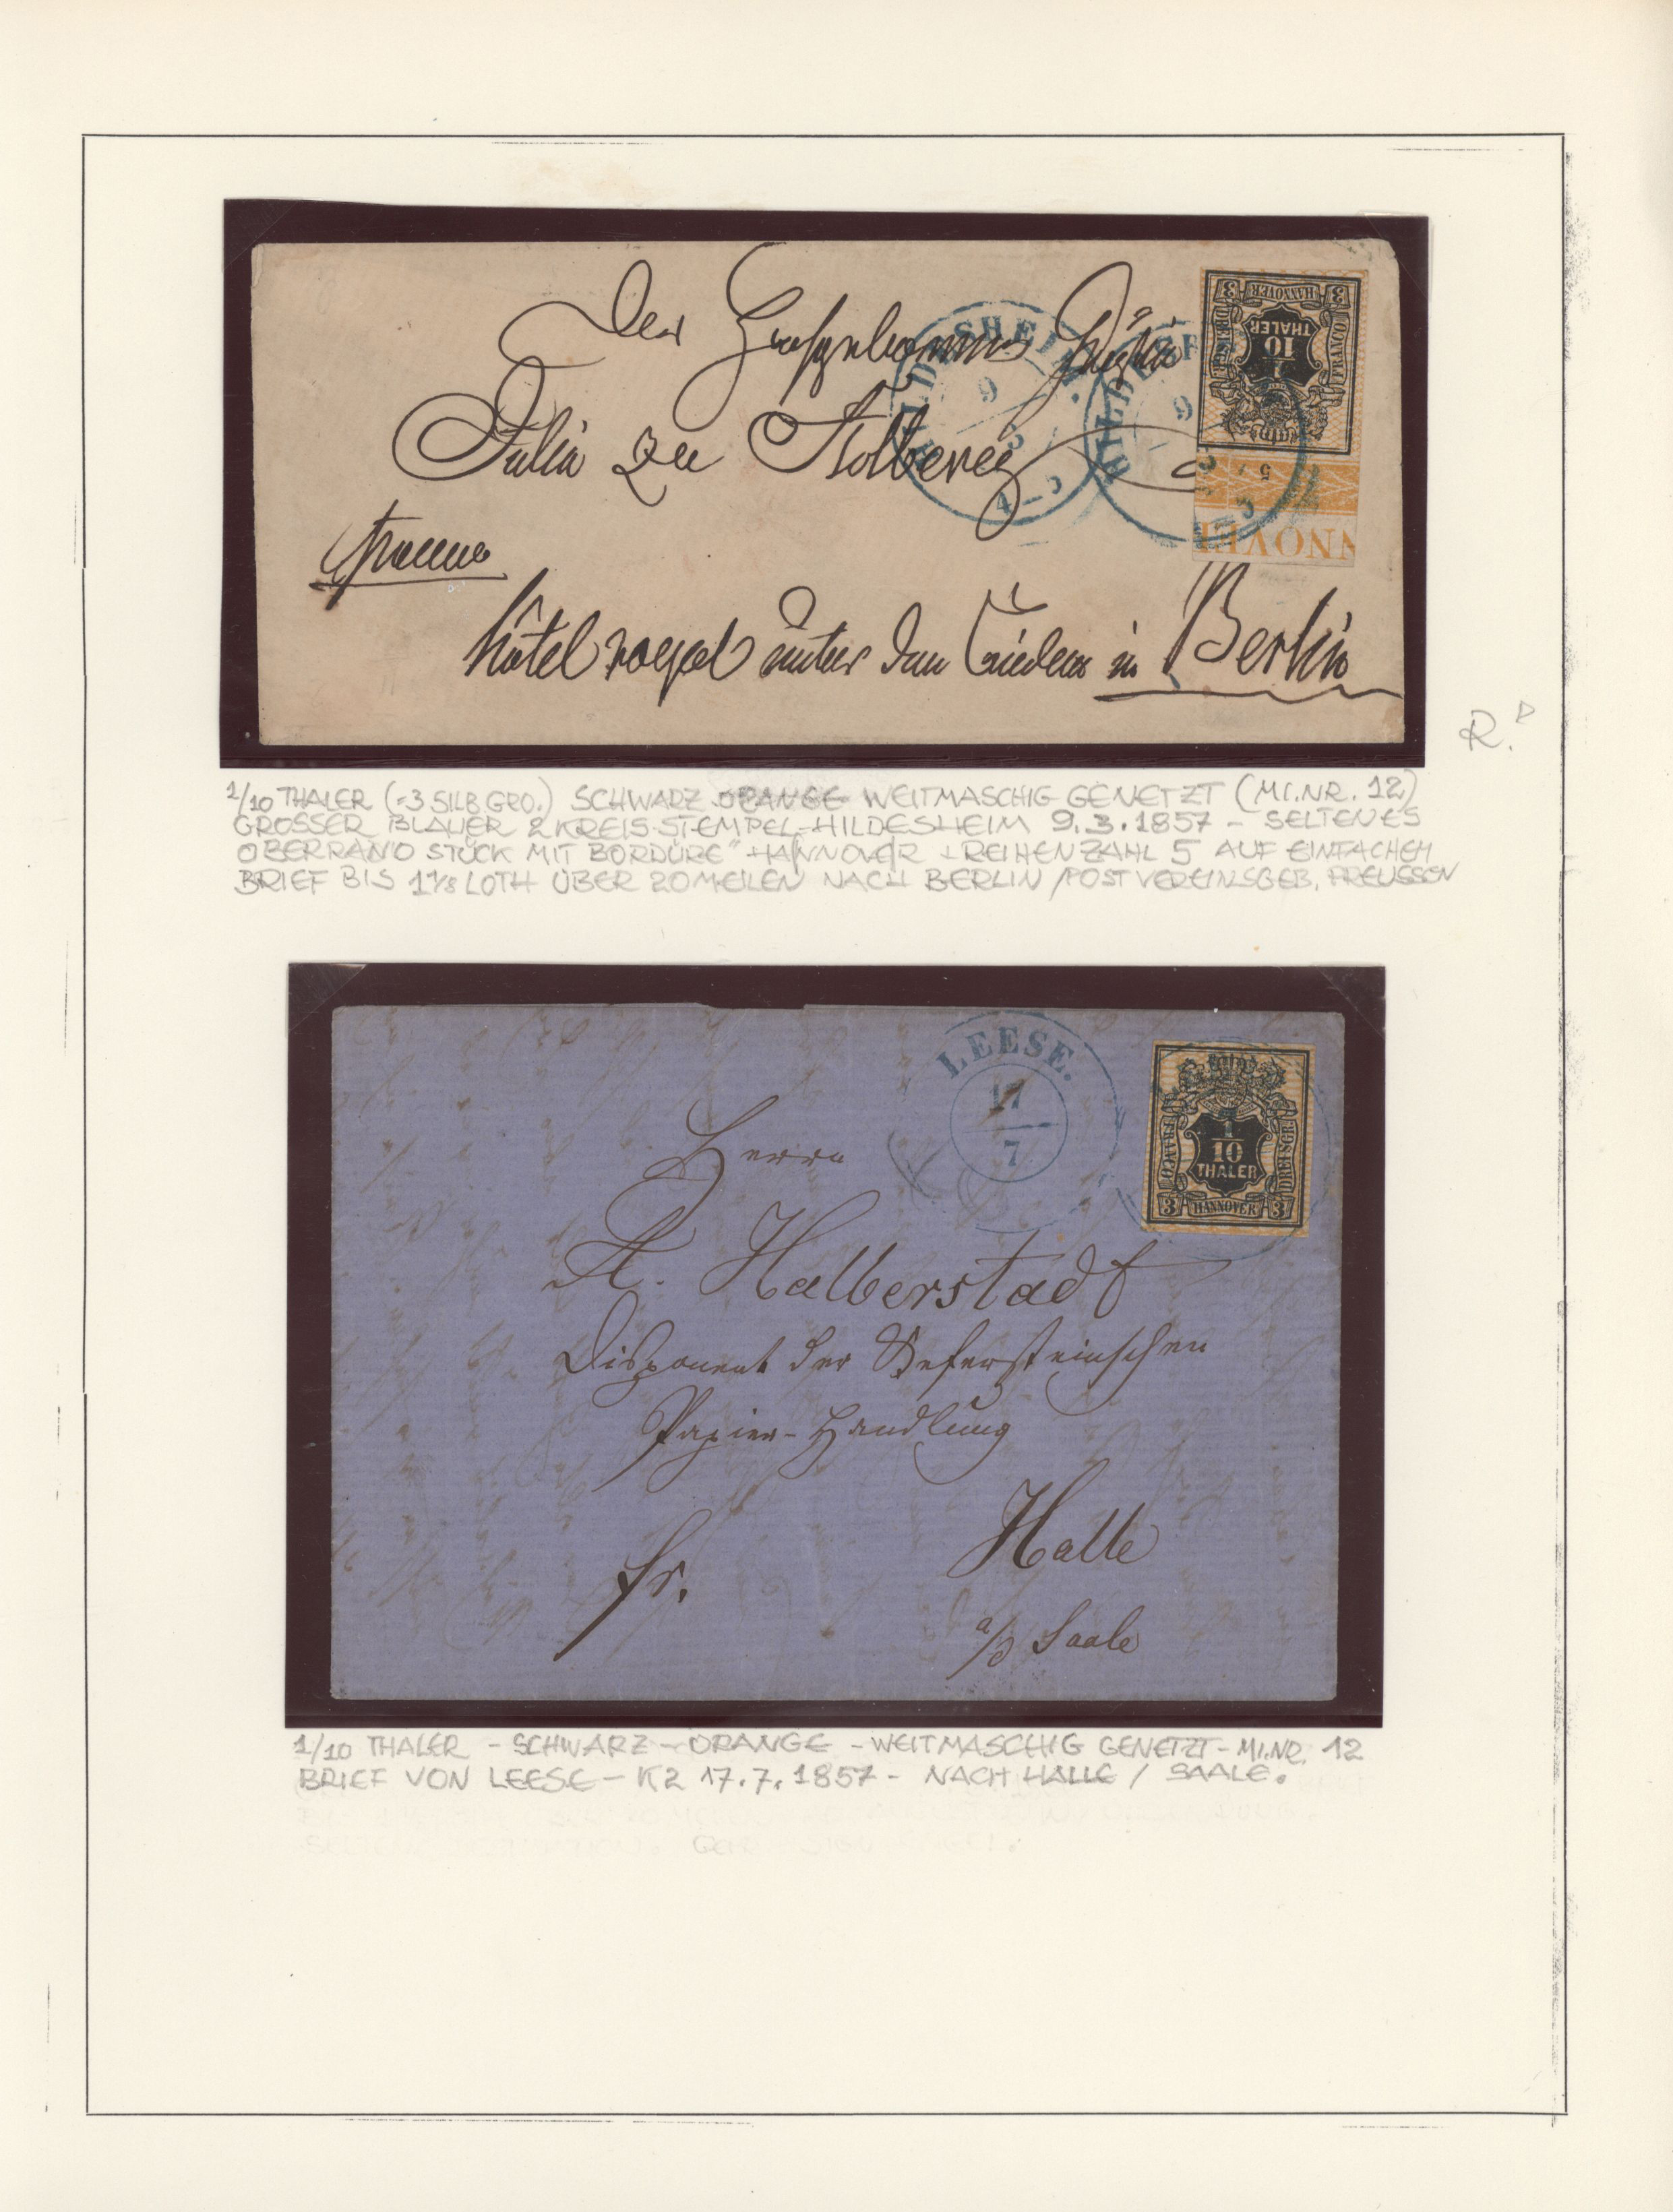 Der
Julia zu Stolberg
franco
Hôtel royal unter den Linden in Berlin
HILDESHEIM.
9
3
4-5
HILDESHEIM
9
3
3 HANNOVER 3
FRANCO
DREI SGR.
1
10
THALER
5
NNOVER
R.
1/10 THALER (=3 SILB.GRO.) SCHWARZ ORANGE WEITMASCHIG GENETZT (MI.NR. 12)
GROSSER BLAUER 2 KREIS-STEMPEL-HILDESHEIM 9.3.1857 - SELTENES
OBERRAND STÜCK MIT BORDÜRE "HANNOVER + REIHENZAHL 5 AUF EINFACHEM
BRIEF BIS 1 1/8 LOTH ÜBER 20 MEILEN NACH BERLIN / POSTVEREINSGEB. PREUSSEN
LEESE.
17
7
1
10
THALER
FRANCO
DREI SGR.
3 HANNOVER 3
Herrn
A. Halberstadt
Disponent der Kefersteinschen
Papier-Handlung
Halle
fr.
a/S Saale
1/10 THALER - SCHWARZ - ORANGE - WEITMASCHIG GENETZT - MI.NR. 12
BRIEF VON LEESE - K2 17.7.1857 - NACH HALLE / SAALE.